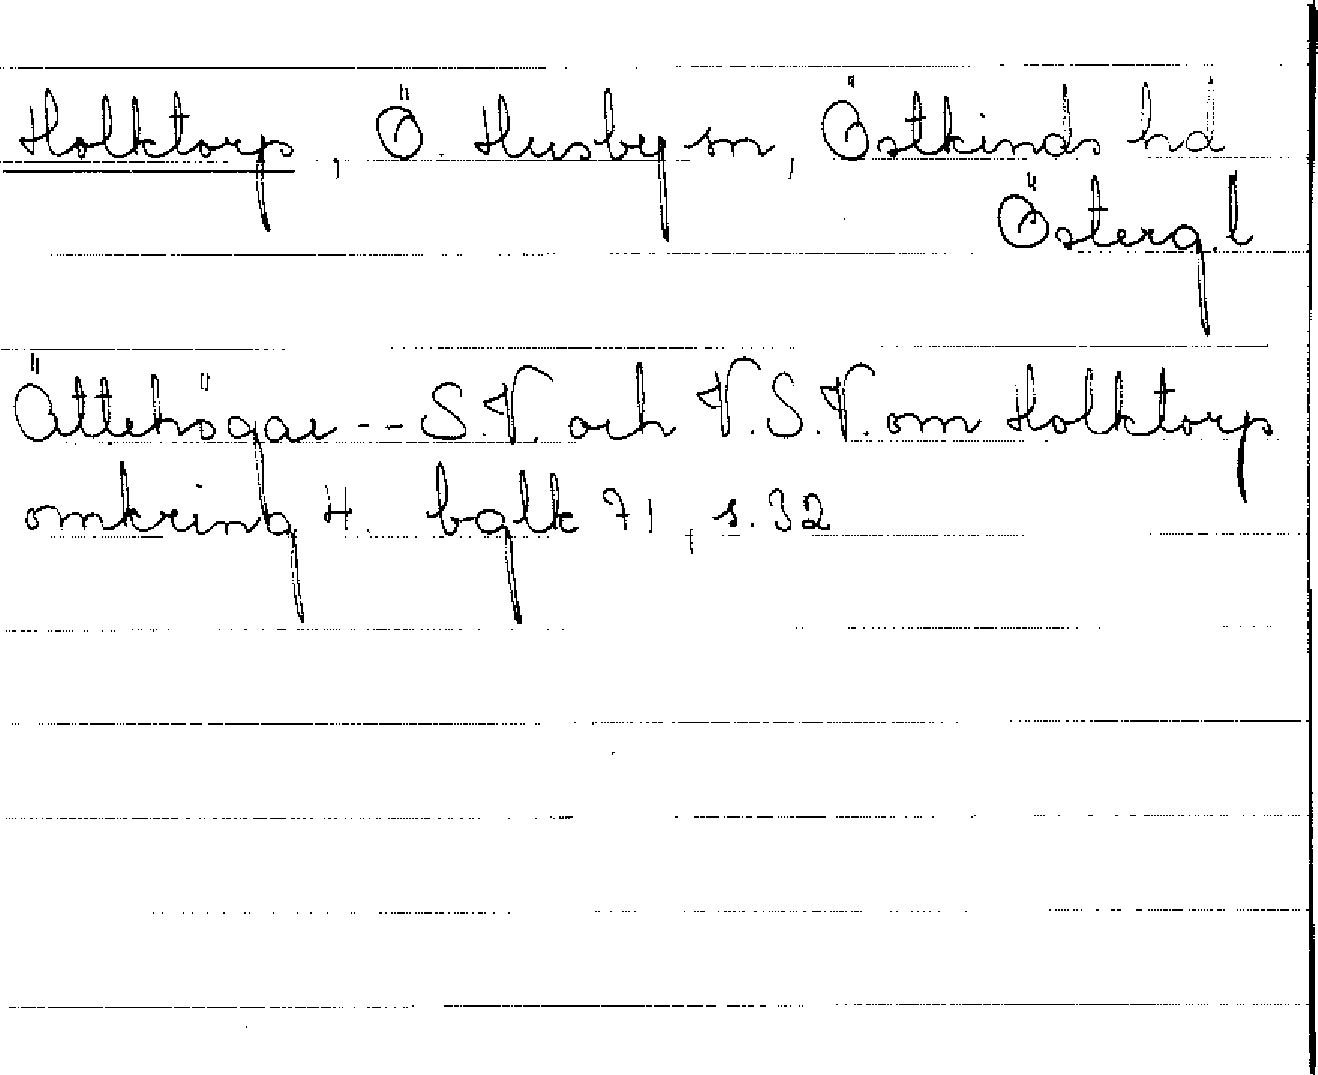 Holktorp, Ö. Husby sn, Östkinds hd
Österg. l
Ättehögar -- S.V. och V.S.V. om Holktorp
omkring 4. bglk 71, s. 32